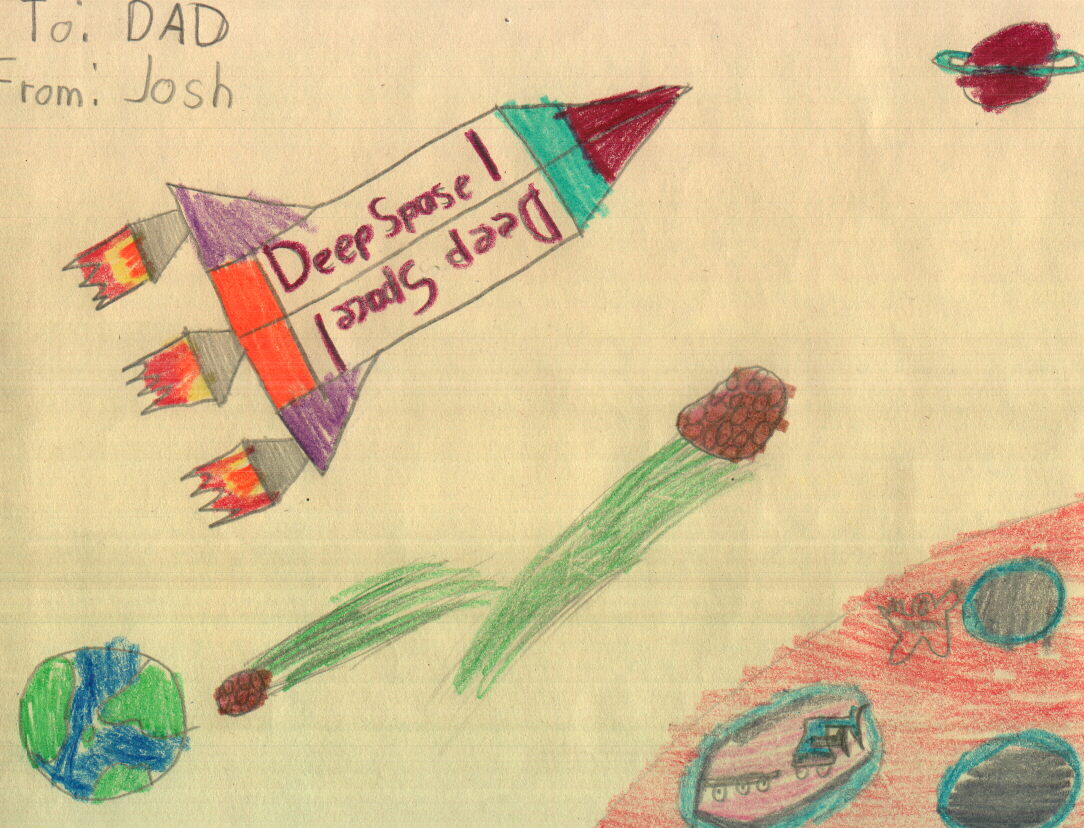 To: DAD
From: Josh
Deep Spase 1
Deep Space 1